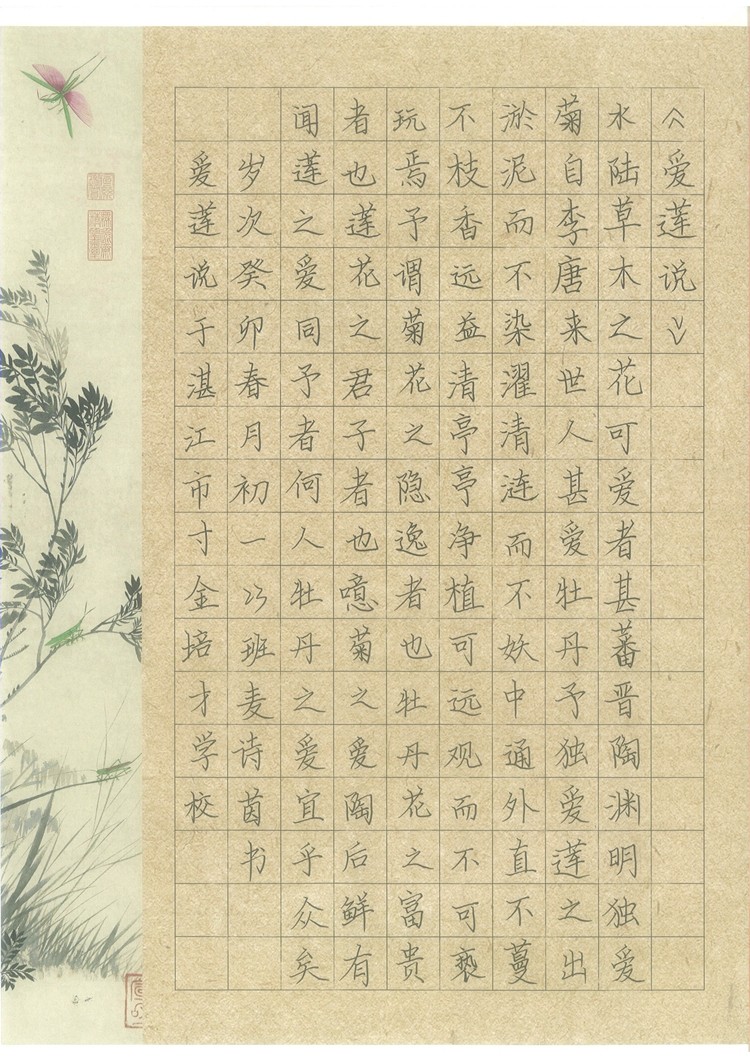 《爱莲说》
水陆草木之花可爱者甚蕃晋陶渊明独爱
菊自李唐来世人甚爱牡丹予独爱莲之出
淤泥而不染濯清涟而不妖中通外直不蔓
不枝香远益清亭亭净植可远观而不可亵
玩焉予谓菊花之隐逸者也牡丹花之富贵
者也莲花之君子者也噫菊之爱陶后鲜有
闻莲之爱同予者何人牡丹之爱宜乎众矣
岁次癸卯春月初一23班麦诗茵书
爱莲说于湛江市寸金培才学校